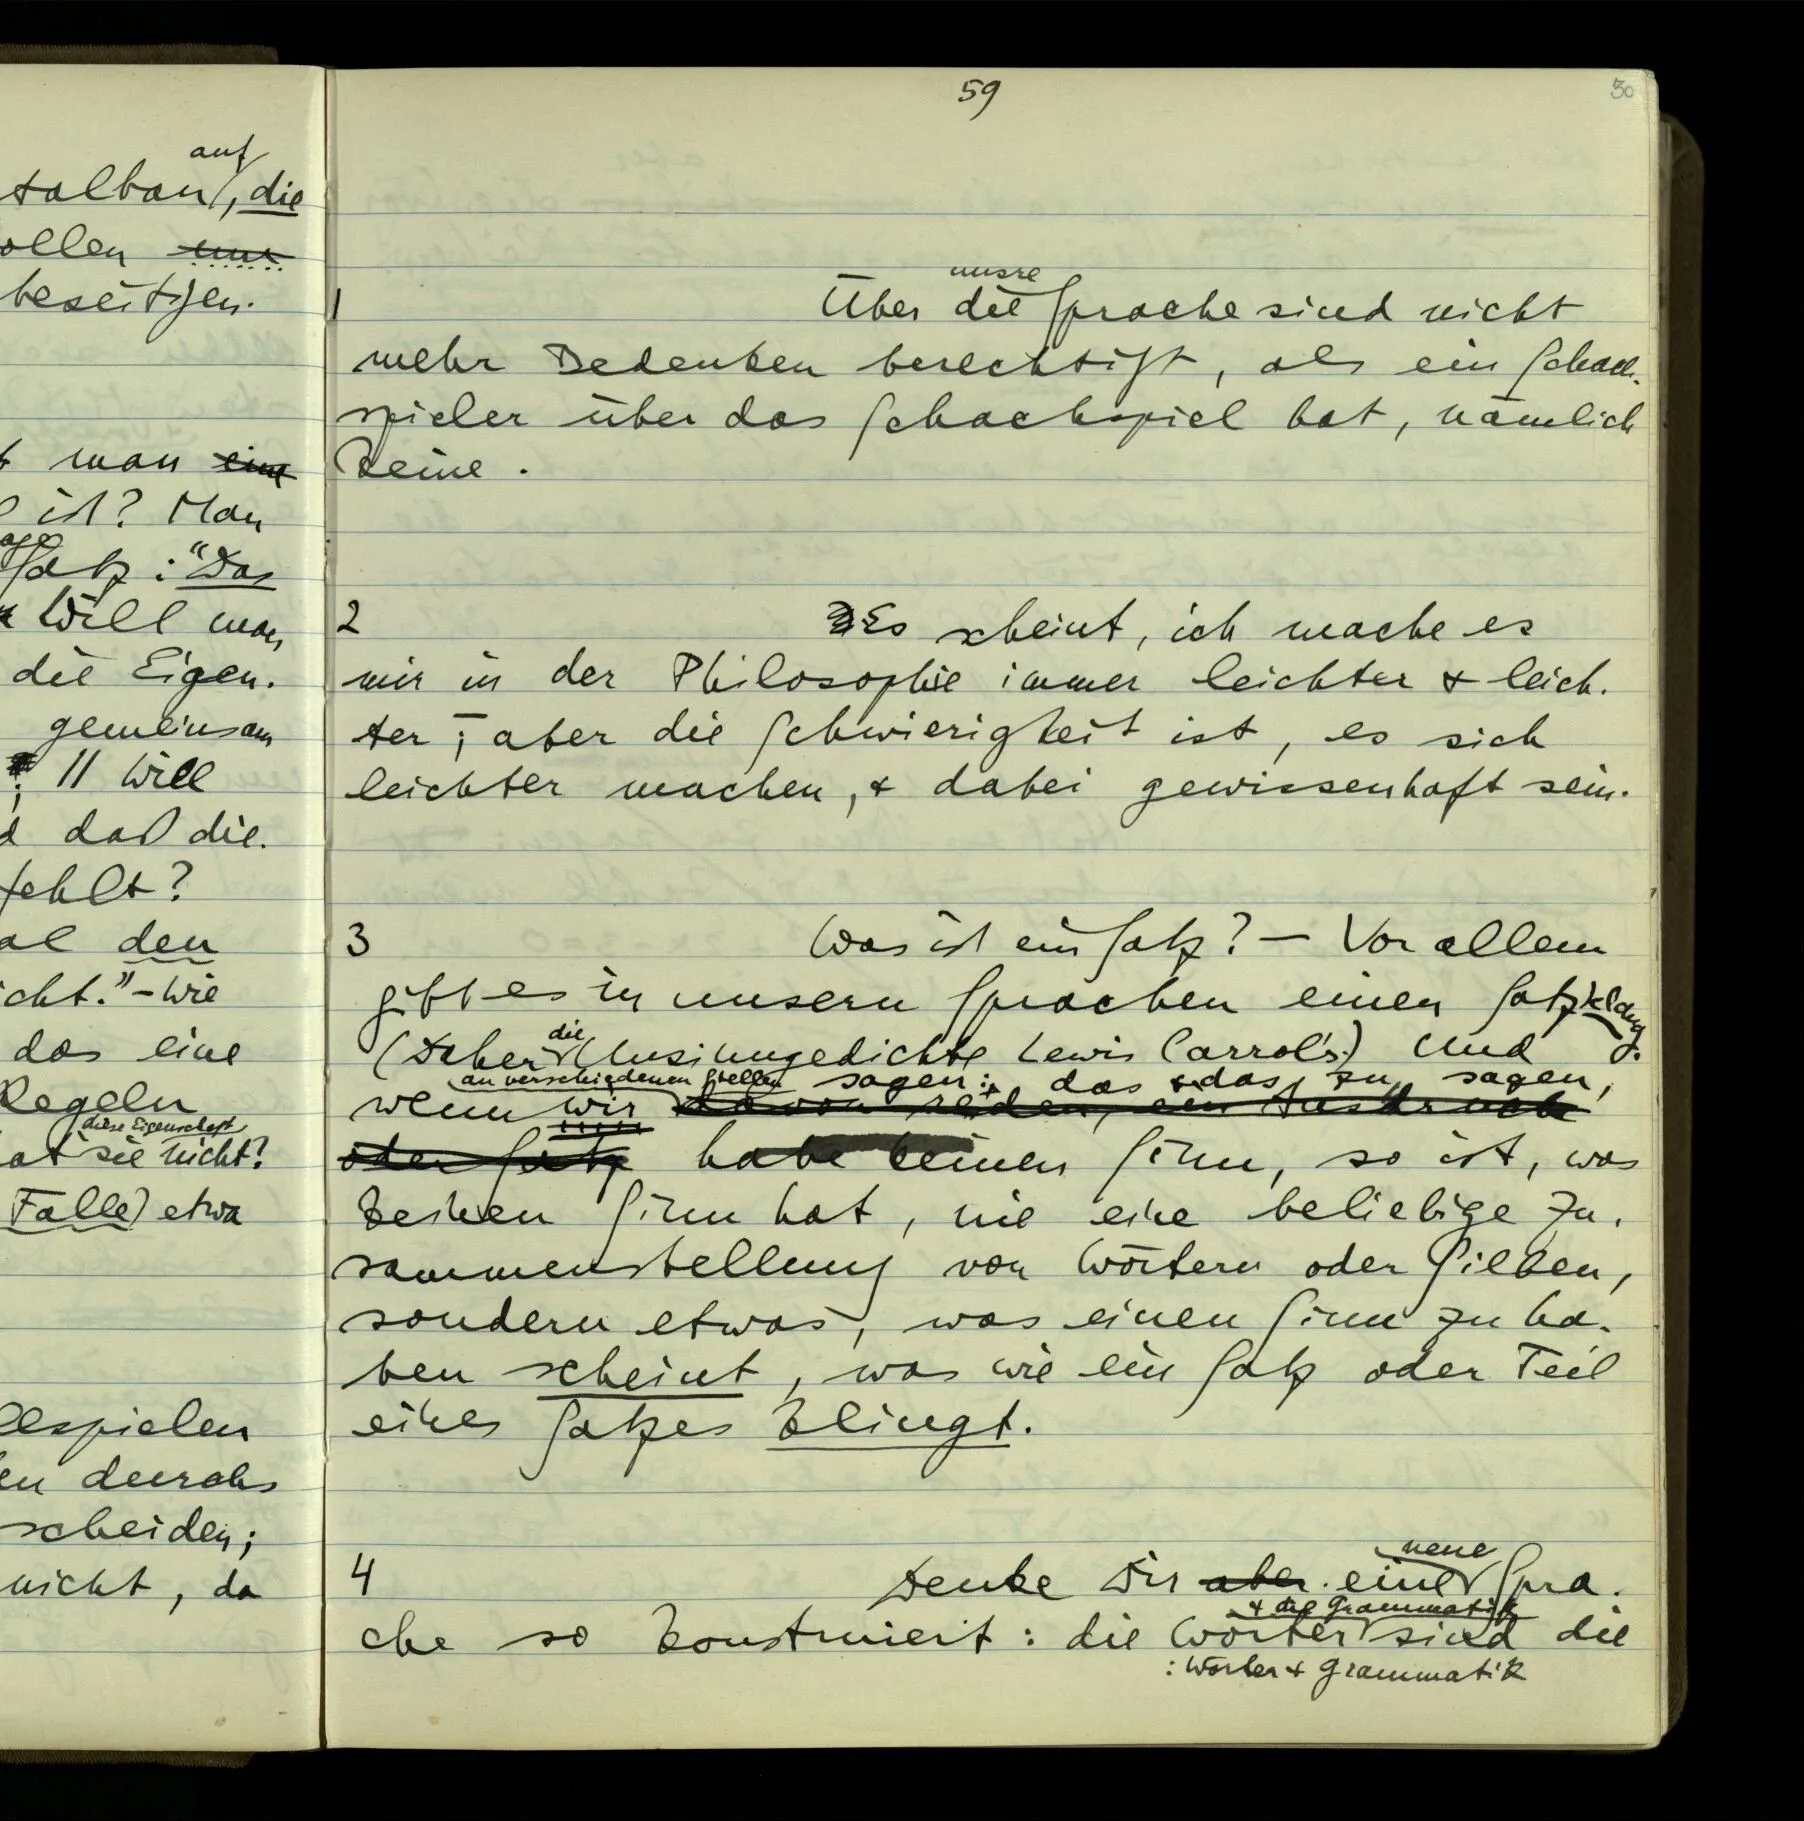 auf
talbau, die
ollen nur
beseitigen.
t man eine
ist? Man
Satz: "Das
Will man
die Eigen-
gemeinsam
; // will
d daß die
fehlt?
al den
icht." – Wie
das eine
Regeln
diese Eigenschaft
at sie nicht?
Falle) etwa
llespielen
en durchs
scheiden;
nicht, da
59
30
unsre
1 Über die Sprache sind nicht
mehr Bedenken berechtigt, als ein Schach-
spieler über das Schachspiel hat, nämlich
keine.
2 Es scheint, ich mache es
mir in der Philosophie immer leichter & leich-
ter; aber die Schwierigkeit ist, es sich
leichter machen, & dabei gewissenhaft sein.
3 Was ist ein Satz? – Vor allem
gibt es in unsern Sprachen einen Satzklang.
die
(Daher Unsinngedichte Lewis Carrol's.) Und
an verschiedenen Stellen sagen: das & das zu sagen,
wenn wir davon reden, ein Ausdruck
oder Satz habe keinen Sinn, so ist, was
keinen Sinn hat, nie eine beliebige Zu-
sammenstellung von Wörtern oder Silben,
sondern etwas, was einen Sinn zu ha-
ben scheint, was wie ein Satz oder Teil
eines Satzes klingt.
neue
4 Denke Dir aber eine Spra-
& die Grammatik
che so konstruiert: die Wörter sind die
: Wörter & Grammatik